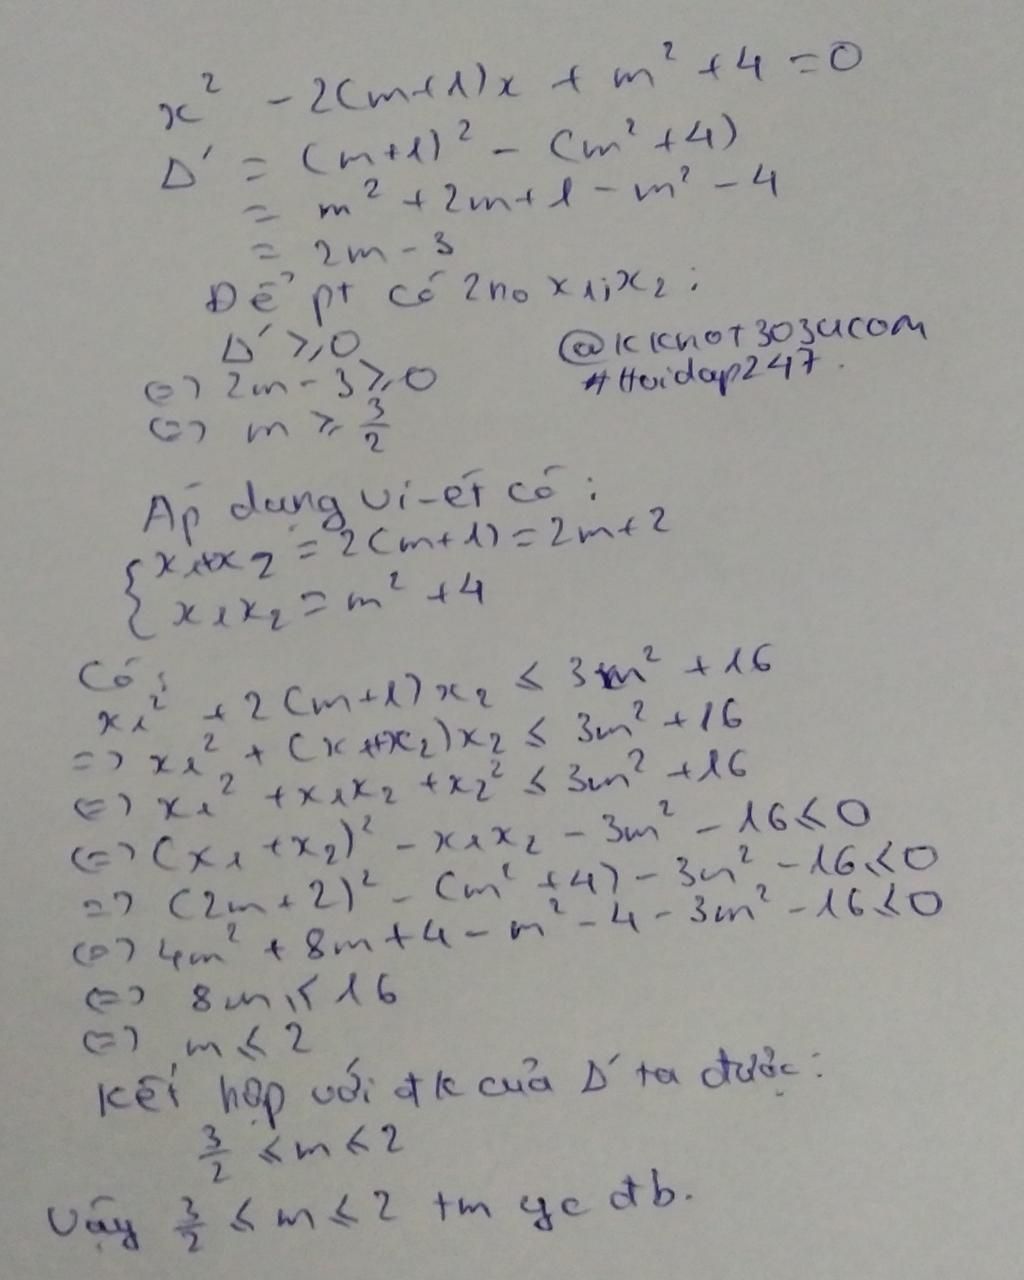 x² - 2(m+1)x + m² + 4 = 0
Δ' = (m+1)² - (m² + 4)
= m² + 2m + 1 - m² - 4
= 2m - 3
Để pt có 2 no x₁; x₂ :
Δ' ⩾ 0
@kkhot3034com
(=) 2m - 3 ⩾ 0
#Hoidap247.
(=) m ⩾ 3/2
Áp dụng vi-ét có :
{ x₁+x₂ = 2(m+1) = 2m + 2
x₁x₂ = m² + 4
Có :
x₁² + 2(m+1)x₂ ⩽ 3m² + 16
=) x₁² + (x₁+x₂)x₂ ⩽ 3m² + 16
(=) x₁² + x₁x₂ + x₂² ⩽ 3m² + 16
(=) (x₁ + x₂)² - x₁x₂ - 3m² - 16 ⩽ 0
=) (2m + 2)² - (m² + 4) - 3m² - 16 ⩽ 0
(=) 4m² + 8m + 4 - m² - 4 - 3m² - 16 ⩽ 0
(=) 8m ⩽ 16
(=) m ⩽ 2
Kết hợp với đk của Δ' ta được :
3/2 ⩽ m ⩽ 2
Vậy 3/2 ⩽ m ⩽ 2 tm yc đb.